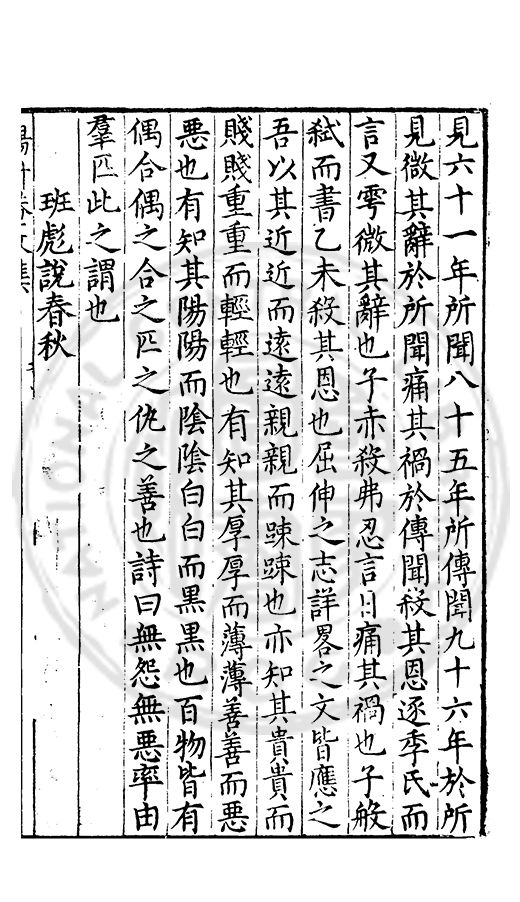 見六十一年所聞八十五年所傳聞九十六年於所
見微其辭於所聞痛其禍於傳聞殺其恩逐季氏而
言又雩微其辭也子赤殺弗忍言日痛其禍也子般
弑而書乙未殺其恩也屈伸之志詳畧之文皆應之
吾以其近近而遠遠親親而踈踈也亦知其貴貴而
賤賤重重而輕輕也有知其厚厚而薄薄善善而悪
悪也有知其陽陽而陰陰白白而黒黒也百物皆有
偶合偶之合之匹之仇之善也詩曰無怨無悪率由
羣匹此之謂也
班彪說春秋